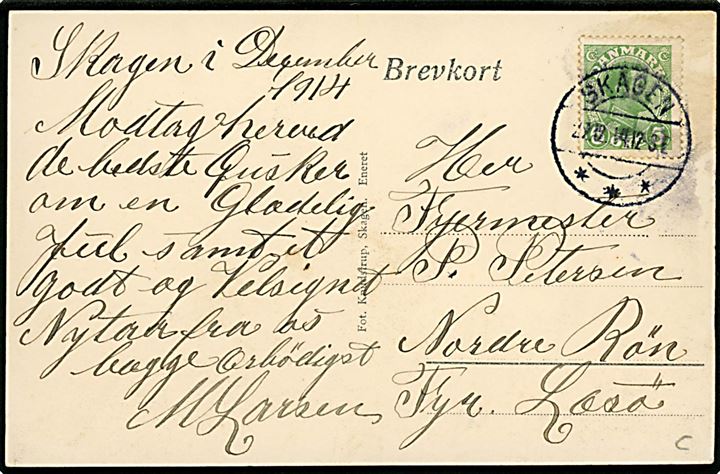 Skagen i December
1914
Modtag herved
de bedste Ønsker
om en Glædelig
Juul samt et
godt og Velsignet
Nytaar fra os
begge Ærbødigst
M Larsen
Brevkort
Fot. Kaldstrup, Skagen. Eneret
DANMARK
5
SKAGEN
Her
Fyrmester
P. Petersen
Nordre Rön
Fyr. Læsö
C